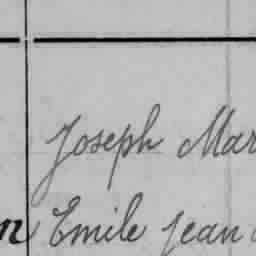 Joseph Mar
n Emile Jean